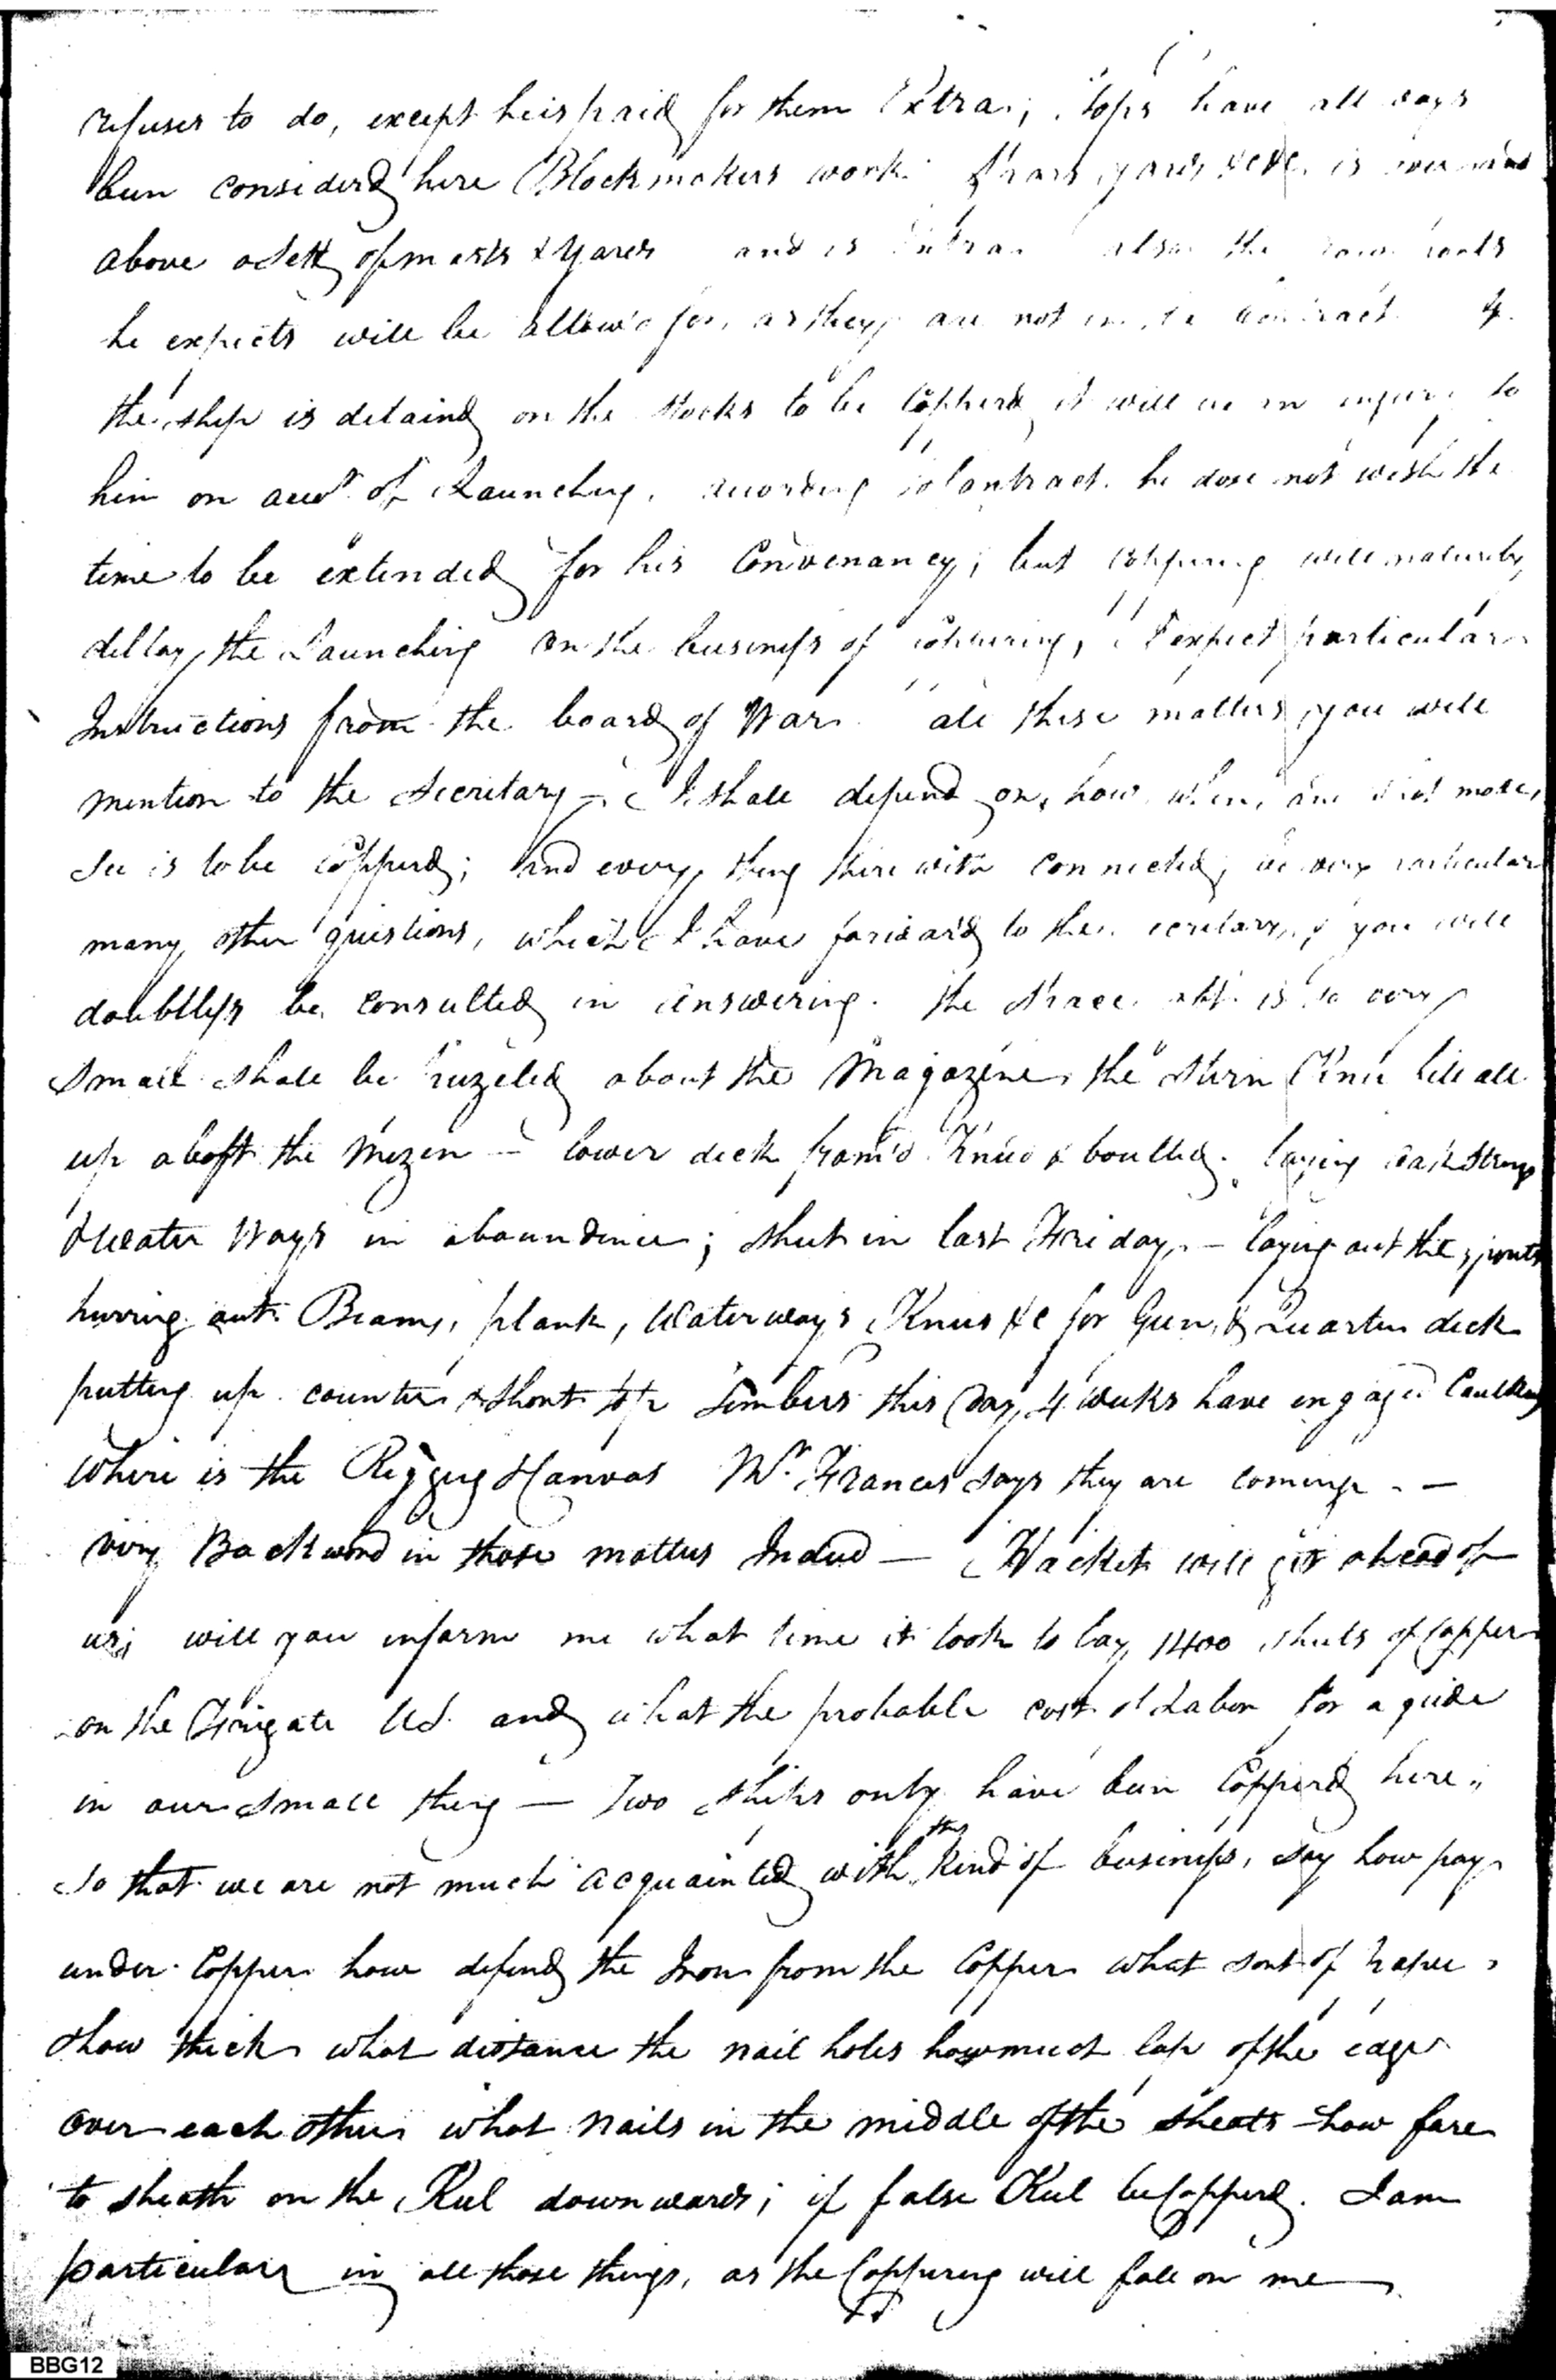 refuses to do, except he is paid for them Extra; tops have all ways
been considerd here Blockmakers work. Spars, yards &c &c. is over and
above a Sett of masts & Yards and is Extra also the
he expects will be allow'd for, as they are not in the Contract If
the ship is detaind on the Stocks to be Copperd it will be an injury to
him on acct. of Launching, according to Contract. he dose not wish the
time to be extended for his Convenancy; but Coppering will naturely
dellay the Launching on the business of Coppering, I expect particular
Instructions from the board of War. all these matters you will
mention to the Secretary - I shall depend on, how, when, and what mode,
See is to be Copperd; and every thing there with connected, be very particular
many other questions, which I have forward to the Secretary, & you will
doubtless be consulted in answering. the Space aft is so very
Small shall be puzeled about the Magazene, the Stern Knee fill all
up abaft the Mizen - lower deck fram'd Knee'd & boulted. laying Dack Streaps
& Water Ways in aboundence; Shut in last Friday, - laying out the spouts
hurring out Beams, plank, Water ways Knees &c for Gun, & Quarter deck
putting up counter & Short top timbers this Day, 4 weeks have engaged Caulkers
Where is the Rigging & Canvas Mr. Frances says they are coming - -
very Backward in those matters Indeed - Hacket will git ahead of
us; will you inform me what time it took to lay 1400 sheets of Copper
on the Frigate U S. and what the probable cost of Labor for a guide
in our Small thing - Two Ships only have been Copperd here,
So that we are not much acquainted with this kind of business, say how pay
under Copper how defend the Iron from the Copper what sort of paper,
& how thick what distance the nail holes how much lap of the edges
over each other what nails in the middle of the sheets - how fare
to sheath on the Keel down wards; if false Keel be Copperd. I am
particular in all those things, as the Coppering will fall on me
BBG12